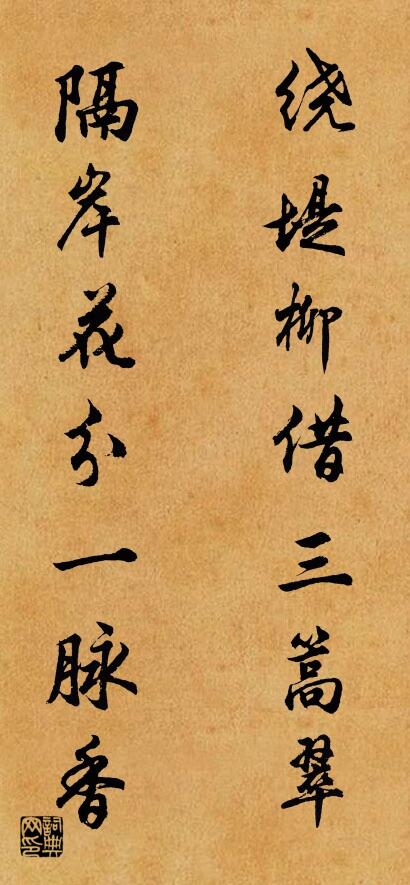 绕堤柳借三篙翠
隔岸花分一脉香
詞典
网印